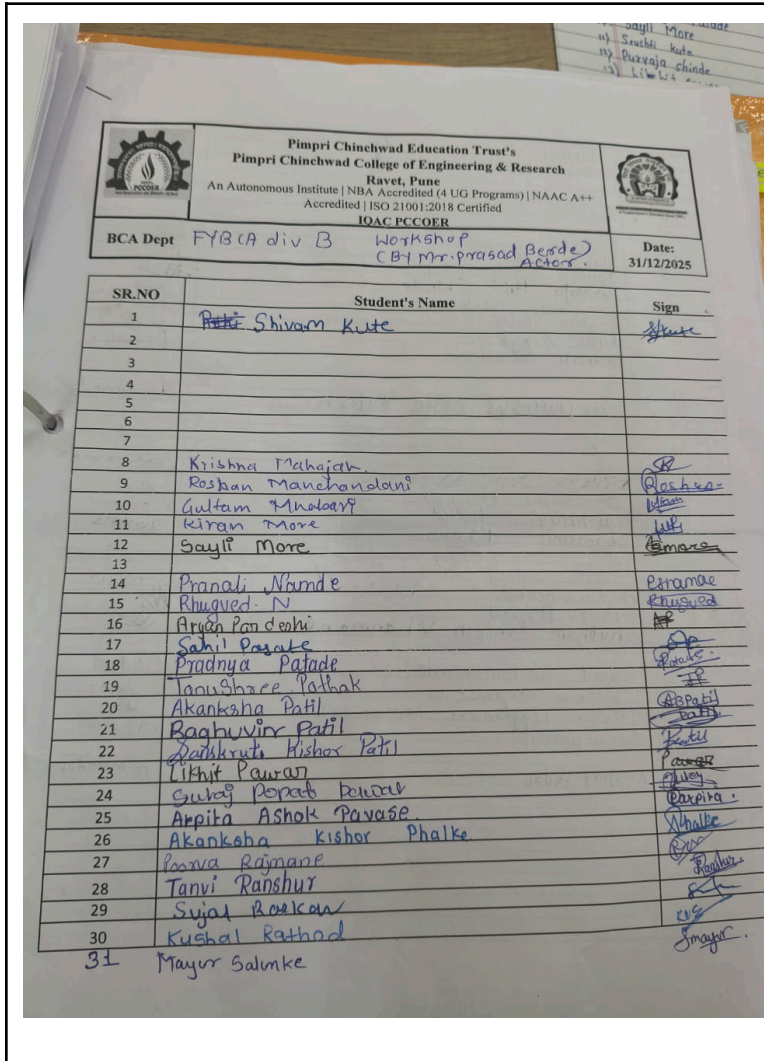 Sayli More
11) Srushti kute
12) Purvaja shinde
13) Likhit
PCCOER
Pimpri Chinchwad Education Trust's
Pimpri Chinchwad College of Engineering & Research
Ravet, Pune
An Autonomous Institute | NBA Accredited (4 UG Programs) | NAAC A++
Accredited | ISO 21001:2018 Certified
IQAC PCCOER
BCA Dept FYBCA div B Workshop
(BY Mr. Prasad Berde)
Actor.
Date:
31/12/2025
SR.NO Student's Name Sign
1 Shivam Kute Skute
2
3
4
5
6
7
8 Krishna Mahajan
9 Roshan Manchandani Roshan
10 Gulfam
11 Kiran More
12 Sayli More Smore
13
14 Pranali Namde
15 Rhugved. N Rhugved
16 Aryan Pardeshi
17 Sahil Parate
18 Pradnya Patade
19 Tanushree Pathak
20 Akanksha Patil ABPatil
21 Raghuvir Patil Patil
22 Sanskruti Kishor Patil
23 Likhit Pawar Pawar
24 Suraj Popat
25 Arpita Ashok Pavase Parpita.
26 Akanksha Kishor Phalke Phalke
27 Poorva Rajmane
28 Tanvi Ranshur Ranshur
29 Sujal
30 Kushal Rathod
31 Mayur Salunke Smayur.